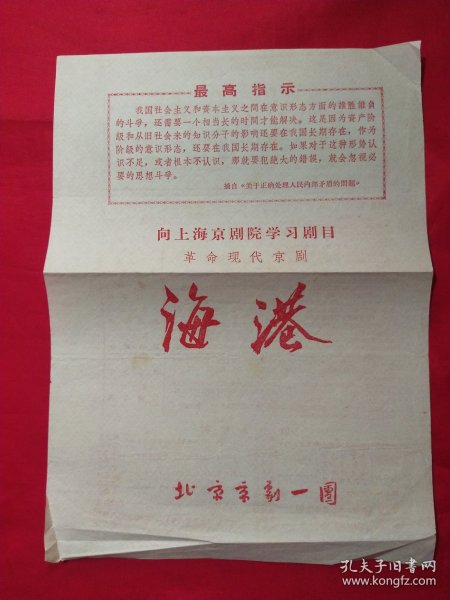 最高指示
我国社会主义和资本主义之間在意识形态方面的誰胜誰負
的斗爭，还需要一个相当长的时間才能解决。这是因为資产阶
級和从旧社会来的知识分子的影响还要在我国长期存在，作为
阶級的意识形态，还要在我国长期存在。如果对于这种形势认
识不足，或者根本不认识，那就要犯絕大的错誤，就会忽视必
要的思想斗爭。
摘自《关于正确处理人民內部矛盾的問題》
向上海京剧院学习剧目
革命现代京剧
海港
北京京剧一團
孔夫子旧书网
www.kongfz.com